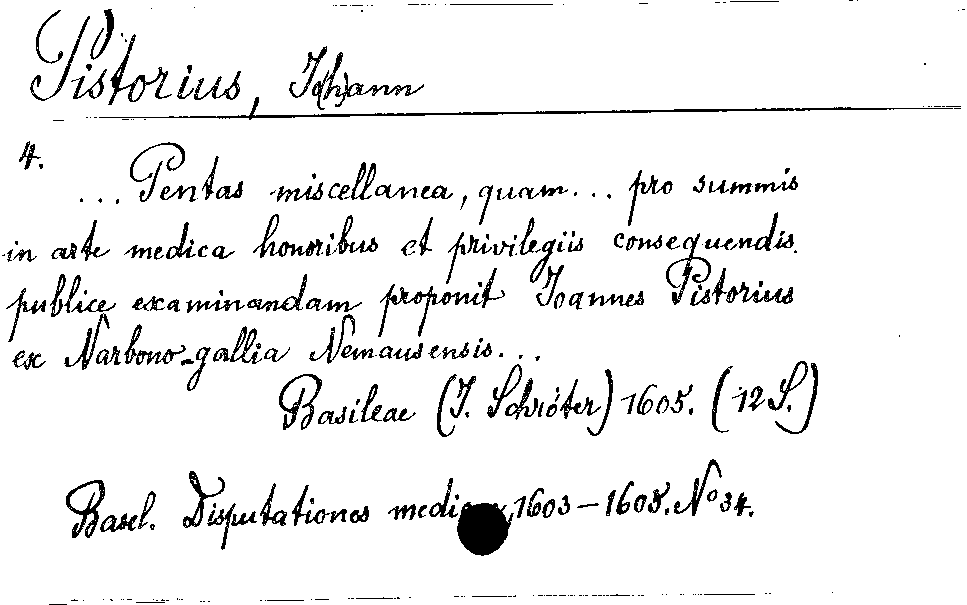 Pistorius, Jo(h)ann
4.
... Pentas miscellanea, quam ... pro summis
in arte medica honoribus et privilegiis consequendis
publice examinandam proponit Joannes Pistorius
ex Narbono-gallia Nemausensis...
Basileae (J. Schröter) 1605. (12 S.)
Basel. Disputationes medicae, 1603-1605. No 34.